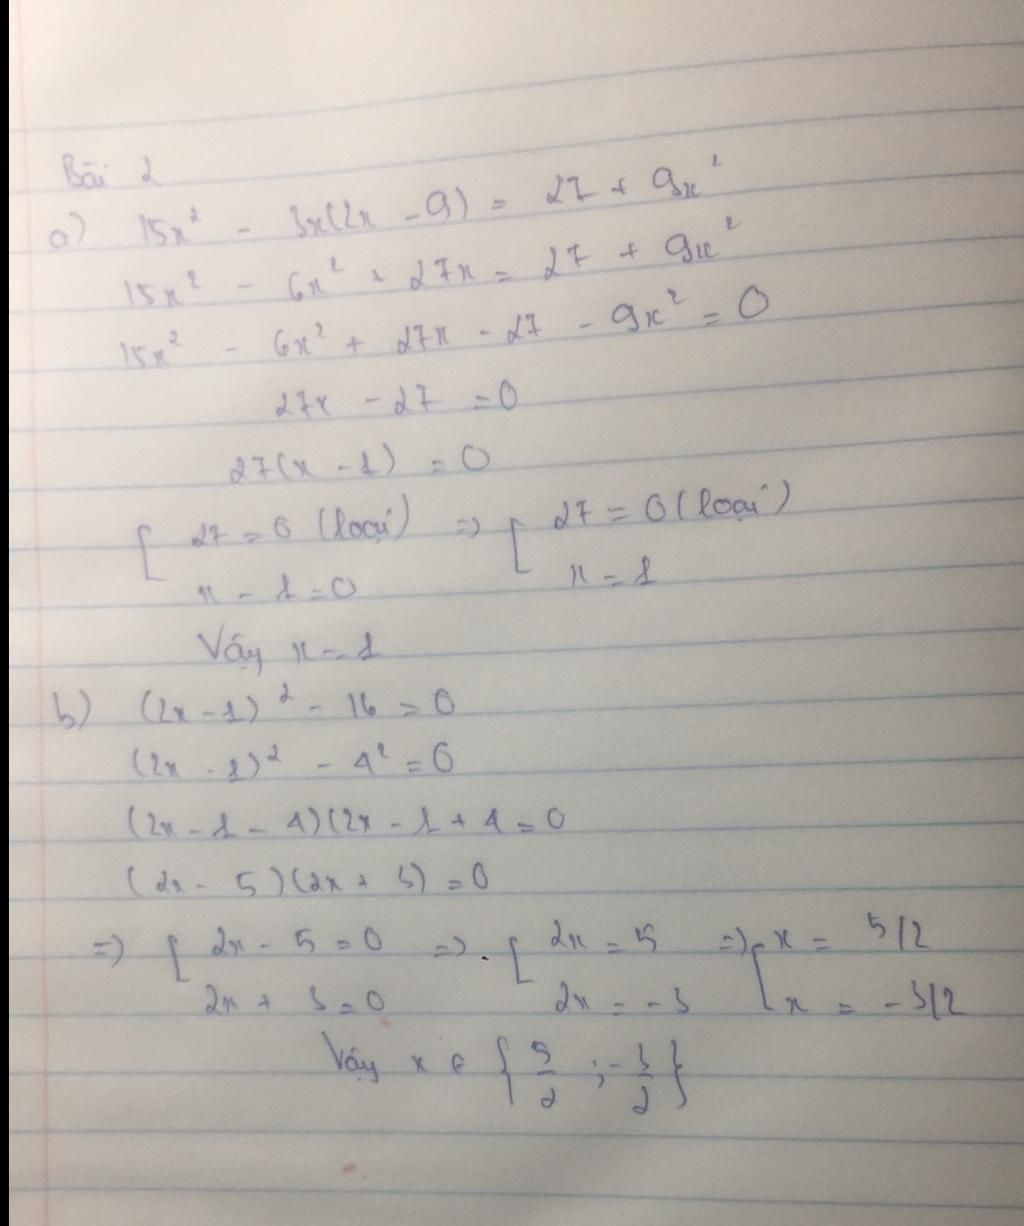 Bài 2
a) 15x² - 3x(2x - 9) = 27 + 9x²
15x² - 6x² + 27x = 27 + 9x²
15x² - 6x² + 27x - 27 - 9x² = 0
27x - 27 = 0
27(x - 1) = 0
[ 27 = 0 (loại) => [ 27 = 0 (loại)
x - 1 = 0 x = 1
Vậy x = 1
b) (2x - 1)² - 16 = 0
(2x - 1)² - 4² = 0
(2x - 1 - 4)(2x - 1 + 4 = 0
(2x - 5)(2x + 3) = 0
=> [ 2x - 5 = 0 => [ 2x = 5 => [ x = 5/2
2x + 3 = 0 2x = -3 x = -3/2
Vậy x ∈ { 5/2 ; -3/2 }